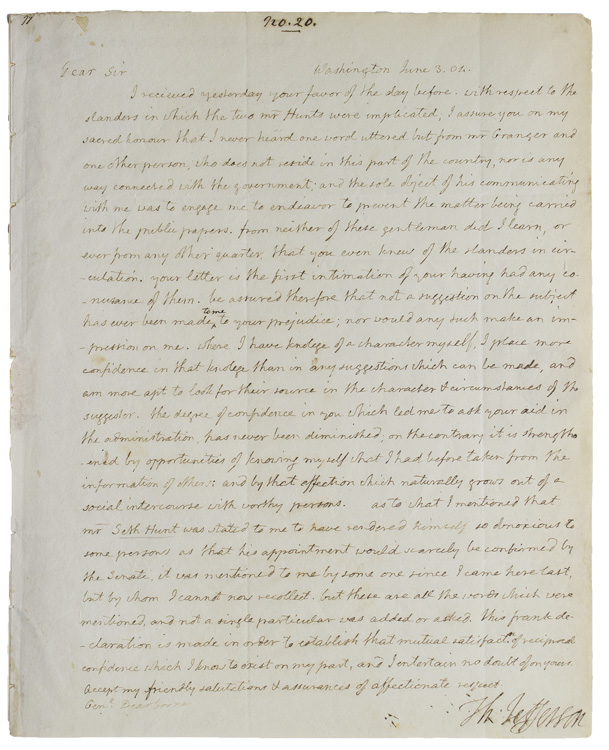 No. 20.
Dear Sir Washington June 3. 04.
I recieved yesterday your favor of the day before. with respect to the
slanders in which the two mr Hunts were implicated, I assure you on my
sacred honour that I never heard one word uttered but from mr Granger and
one other person, who does not reside in this part of the country, nor is any
way connected with the government; and the sole object of his communicating
with me was to engage me to endeavor to prevent the matter being carried
into the public papers. from neither of these gentleman did I learn, or
ever from any other quarter, that you even knew of the slanders in cir-
-culation. your letter is the first intimation of your having had any co-
-nusance of them. be assured therefore that not a suggestion on the subject
has ever been made to me to your prejudice; nor would any such make an im-
-pression on me. where I have knolege of a character myself, I place more
confidence in that knolege than in any suggestions which can be made, and
am more apt to look for their source in the character & circumstances of the
suggestor. the degree of confidence in you which led me to ask your aid in
the administration, has never been diminished; on the contrary it is strengthe
-ened by opportunities of knowing myself what I had before taken from the
information of others; and by that affection which naturally grows out of a
social intercourse with worthy persons. as to what I mentioned that
mr Seth Hunt was stated to me to have rendered himself so obnoxious to
some persons as that his appointment would scarcely be confirmed by
the Senate, it was mentioned to me by some one since I came here last,
but by whom I cannot now recollect. but these are all the words which were
mentioned, and not a single particular was added or asked. this frank de-
-claration is made in order to establish that mutual satisfactn. of reciprocal
confidence which I know to exist on my part, and I entertain no doubt of on yours.
Accept my friendly salutations & assurances of affectionate respect
Th: Jefferson
Genl. Dearborne